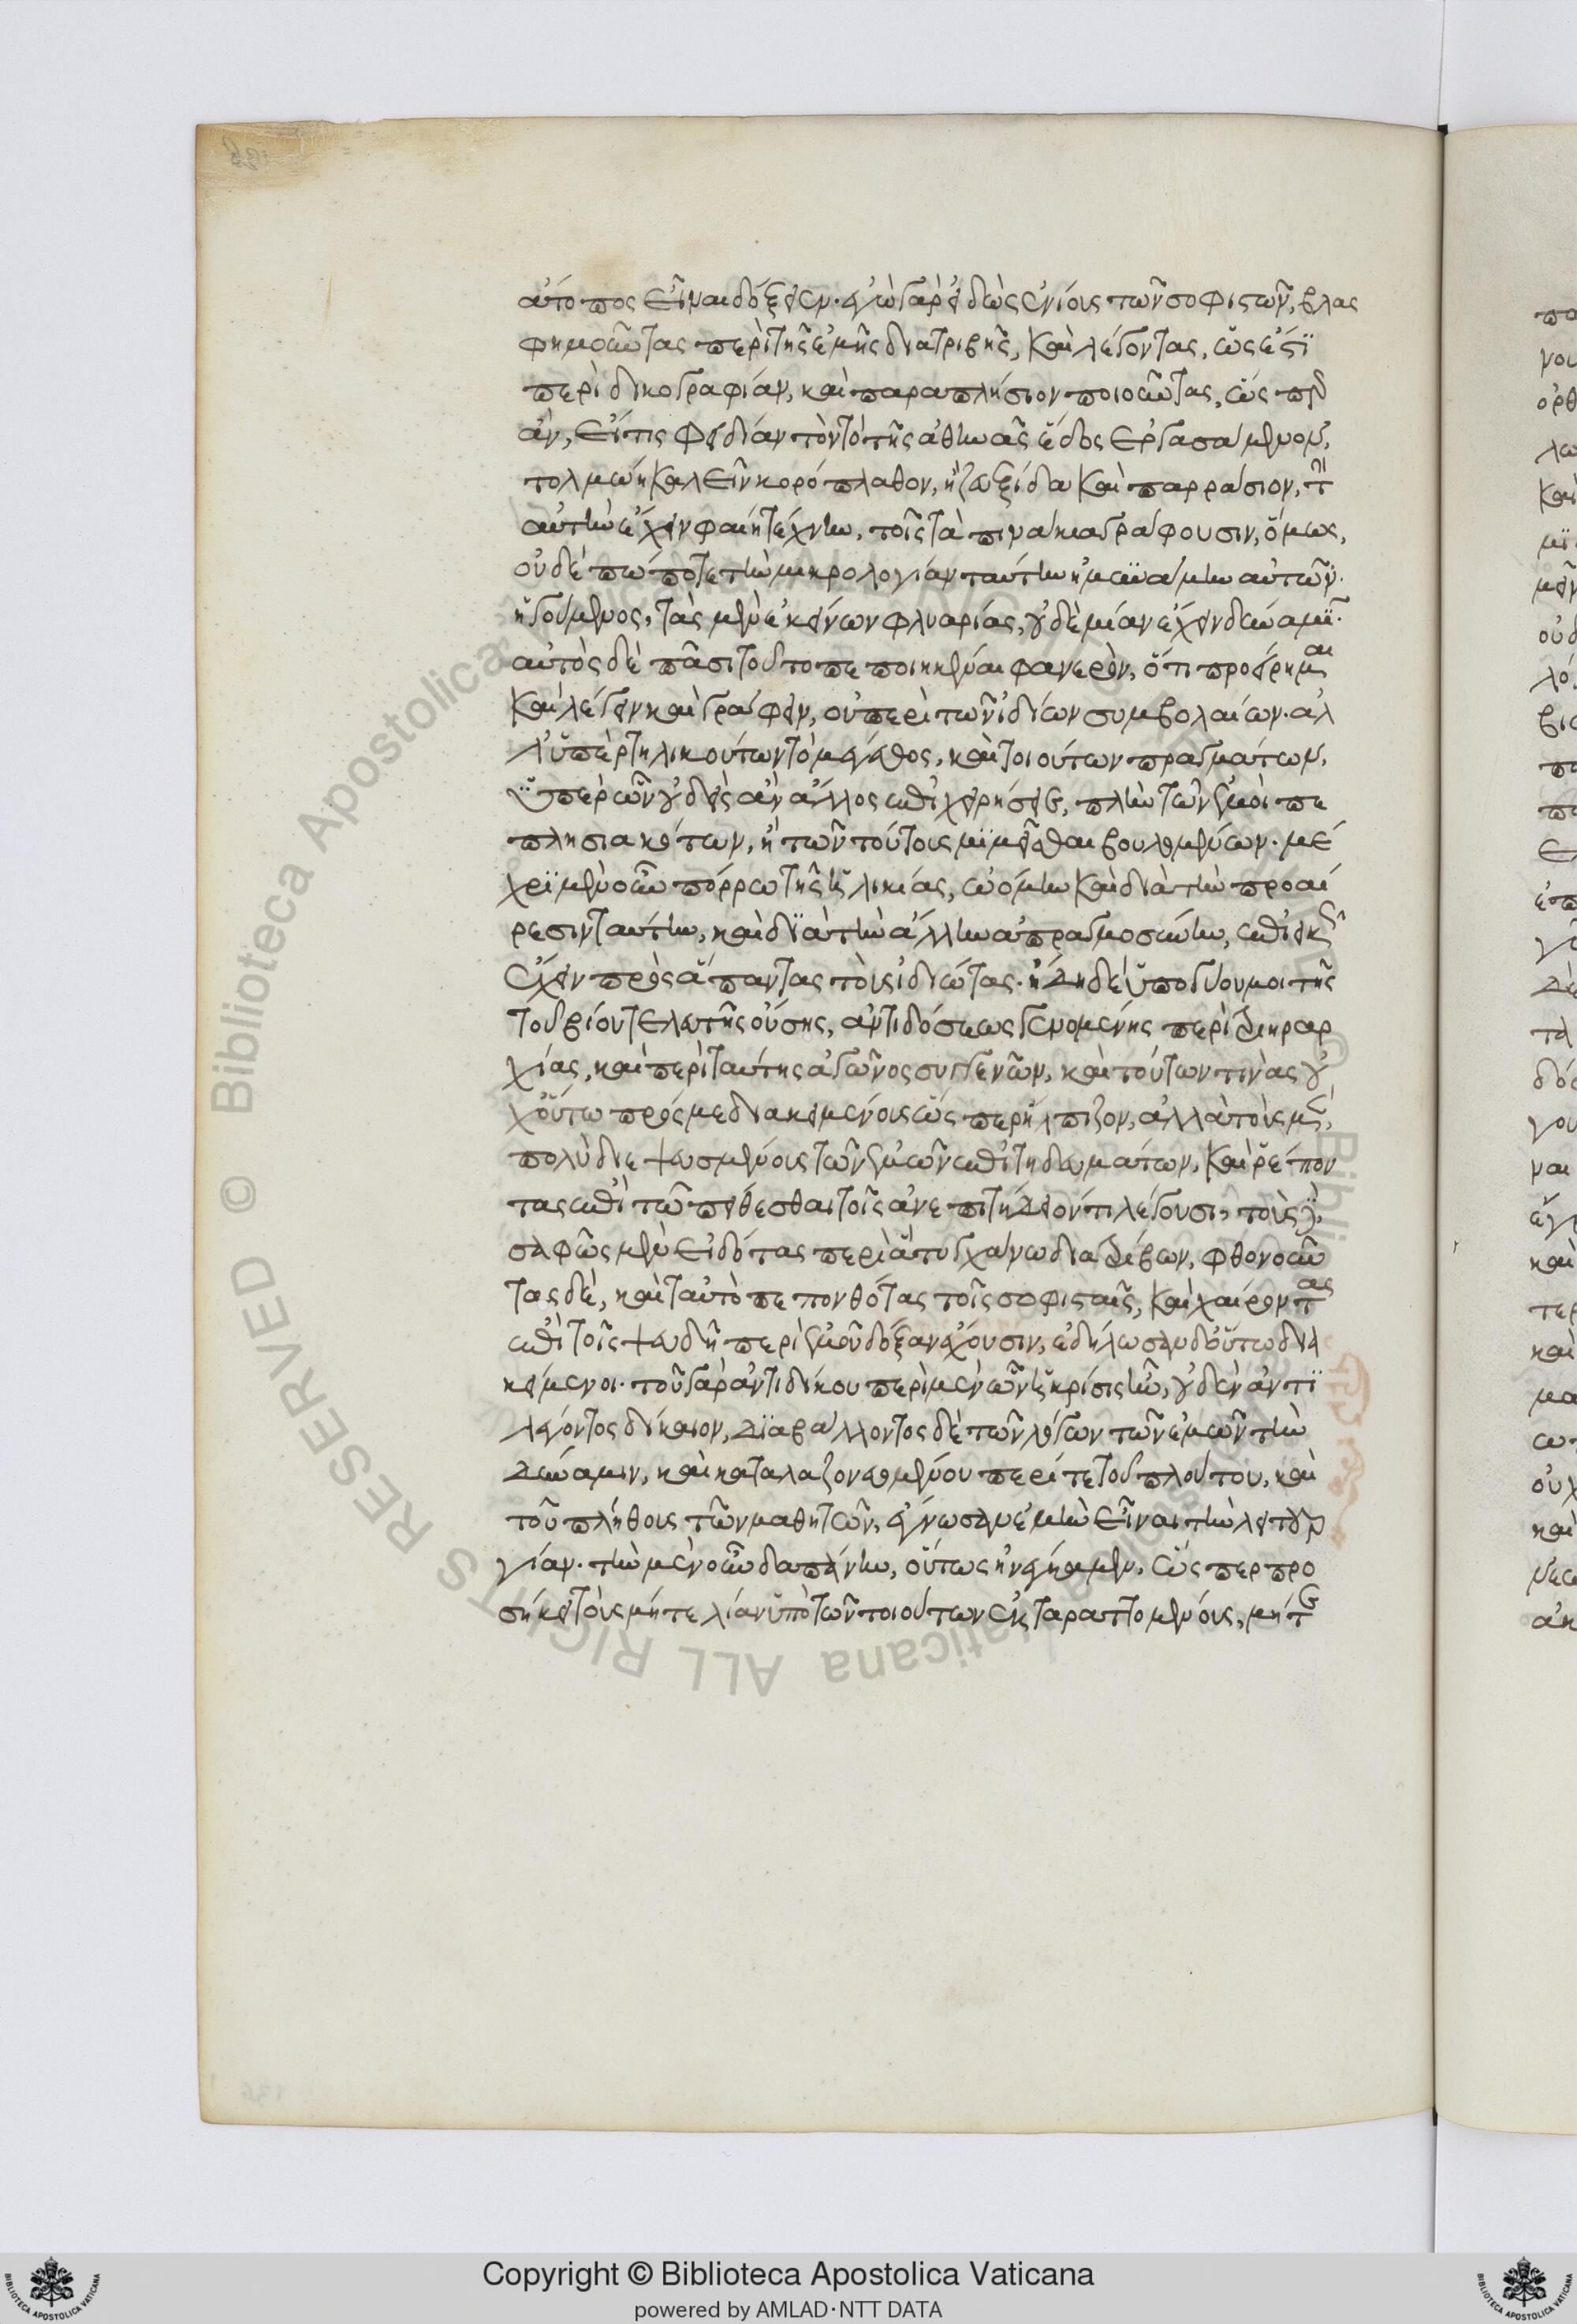 ἄτοπος εἶναι δόξειεν. ἐγὼ γὰρ εἰδὼς ἐνίους τῶν σοφιστῶν, βλας
φημοῦντας περὶ τῆς ἐμῆς διατριβῆς, καὶ λέγοντας, ὡς ἔστι
περὶ δικογραφίαν, καὶ παραπλήσιον ποιοῦντας, ὥσπερ
ἂν, εἴ τις Φειδίαν τὸν τὸ τῆς ἀθηνᾶς ἕδος ἐργασάμενον,
τολμῴη καλεῖν κοροπλάθον, ἢ ζεῦξιν καὶ παρράσιον, τὴν
αὐτὴν ἔχειν φαίη τέχνην, τοῖς τὰ πινάκια γράφουσιν, ὅμως,
οὐδὲ πώποτε τὴν μικρολογίαν ταύτην ἠμυνάμην αὐτῶν.
ἡγούμενος, τὰς μὲν ἐκείνων φλυαρίας, οὐδεμίαν ἔχειν δύναμιν.
αὐτὸς δὲ πᾶσι τοῦτο πεποιηκέναι φανερὸν, ὅτι προῄρημαι
καὶ λέγειν καὶ γράφειν, οὐ περὶ τῶν ἰδίων συμβολαίων. ἀλ
λ' ὑπὲρ τηλικούτων τὸ μέγεθος, καὶ τοιούτων πραγμάτων,
ὑπὲρ ὧν οὐδεὶς ἂν ἄλλος ἐπιχειρήσειε, πλὴν τῶν ἐμοὶ πε
πλησιακότων, ἢ τῶν τούτους μιμεῖσθαι βουλομένων. μέ
χρι μὲν οὖν πόρρω τῆς ἡλικίας, ᾠόμην καὶ διὰ τὴν προαί
ρεσιν ταύτην, καὶ διὰ τὴν ἄλλην ἀπραγμοσύνην, ἐπιεικῶς
ἔχειν πρὸς ἅπαντας τοὺς ἰδιώτας. ἤδη δὲ ὑπογύου μοι τῆς
τοῦ βίου τελευτῆς οὔσης, ἀντιδόσεως γενομένης περὶ τριηραρ
χίας, καὶ περὶ ταύτης ἀγῶνος συγγενῶν, καὶ τούτων τινὰς οὐ
χ οὕτω πρός με διακειμένους ὥσπερ ἤλπιζον, ἀλλὰ τοὺς μὲν,
πολὺ διεψευσμένους τῶν ἐμῶν ἐπιτηδευμάτων, καὶ ῥέπον
τας ἐπὶ τῷ πείθεσθαι τοῖς ἀνεπιτήδειόν τι λέγουσι, τοὺς δὲ,
σαφῶς μὲν εἰδότας περὶ ἃ τυγχάνω διατρίβων, φθονοῦν
τας δὲ, καὶ ταὐτὸ πεπονθότας τοῖς σοφισταῖς, καὶ χαίροντας
ἐπὶ τοῖς ψευδῆ περὶ ἐμοῦ δόξαν ἔχουσιν, ἐδήλωσαν δ' οὕτω δια
κείμενοι. τοῦ γὰρ ἀντιδίκου περὶ μὲν ὧν ἡ κρίσις ἦν, οὐδὲν ἀντι
λέγοντος δίκαιον, διαβάλλοντος δὲ τῶν λόγων τῶν ἐμῶν τὴν
δύναμιν, καὶ καταλαζονευομένου περί τε τοῦ πλούτου, καὶ
τοῦ πλήθους τῶν μαθητῶν, ἔγνωσαν ἐμὴν εἶναι τὴν λειτουρ
γίαν. τὴν μὲν οὖν δαπάνην, οὕτως ἠνέγκαμεν, ὥσπερ προ
σήκει τοὺς μήτε λίαν ὑπὸ τῶν τοιούτων ἐκταραττομένους, μήτε